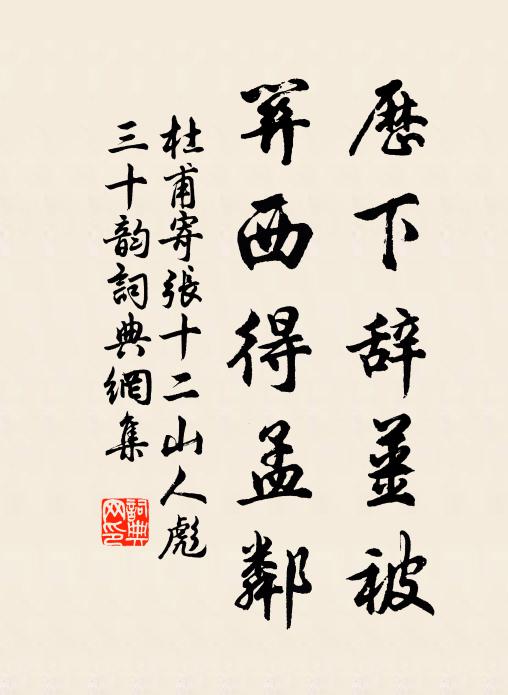 歷下辞薑被
關西得孟鄰
杜甫寄張十二山人彪
三十韵詞典網集
詞典
网印